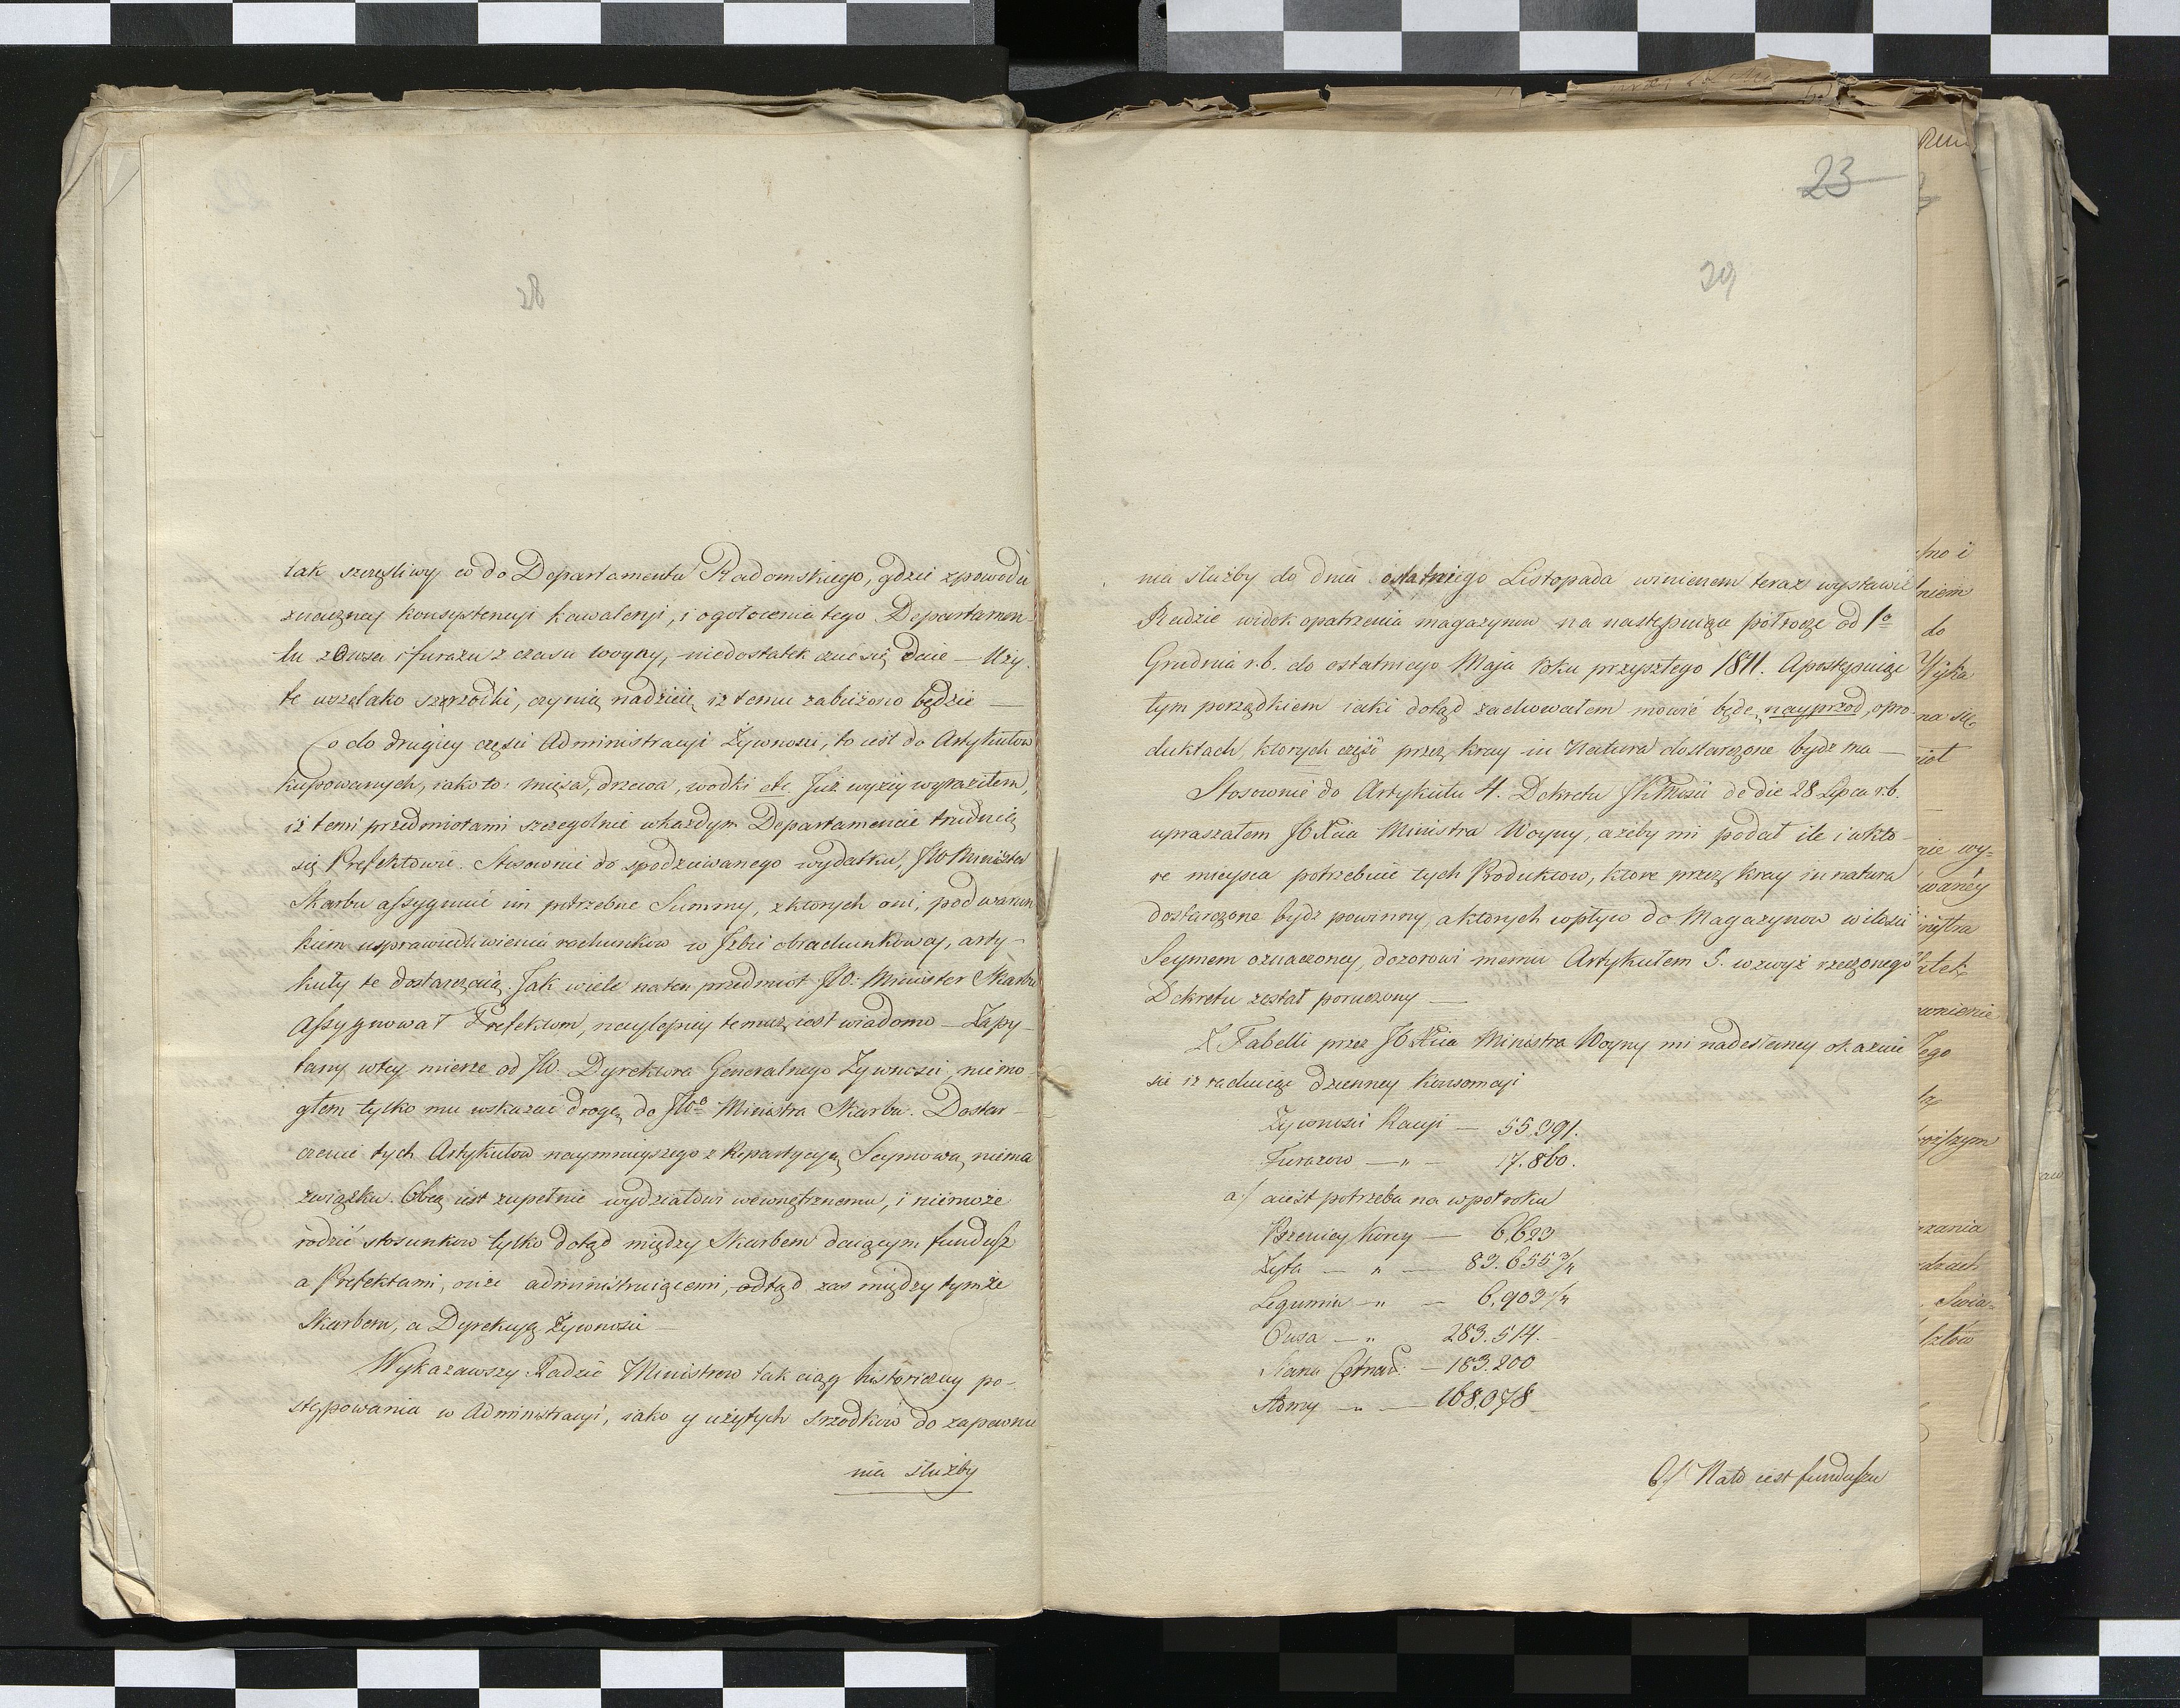 28
tak szczęśliwy co do Departamentu Radomskiego, gdzie z powodu
znaczney konsystencyi kawaleryi, i ogołocenia tego Departamen-
tu z Owsa i furażu z czasu woyny, niedostatek czuć się daie — Uży-
te wszelako szrzodki, czynią nadzieię iż temu zabieżono będzie —
Co do drugiey części Administracyi Żywności, to iest do Artykułow
kupowanych, iako to: mięsa, drzewa, wodki etc. Już wyżey wyraziłem,
iż temi przedmiotami szczegolnie w każdym Departamencie trudnią
się Prefektowie. Stosownie do spodziewanego wydatku, JW Minister
Skarbu assygnuie im potrzebne Summy, z ktorych oni, pod warun
kiem usprawiedliwienia rachunkow w Izbie obrachunkowey, arty-
kuły te dostarczaią. Jak wiele na ten przedmiot JW: Minister Skarbu
Assygnował Prefektom, naylepiey temuż iest wiadomo — Zapy-
tany w tey mierze od JW. Dyrektora Generalnego Żywności, nie mo-
głem tylko mu wskazać drogę do JWo Ministra Skarbu. Dostar-
czenie tych Artykułow naymnieyszego z Repartycyią Seymową niema
związku. Obcą iest zupełnie wydziałowi wewnętrznemu, i nie może
rodzić stosunkow tylko dotąd między Skarbem daiącym fundusz
a Prefektami, onże administruiącemi, odtąd zas między tymże
Skarbem, a Dyrekcyą Żywności —
Wykazawszy Radzie Ministrow tak ciąg historiczny po-
stępowania w Administracyi, iako y użytych srzodkow do zapewnie
nia służby
23
29
nia służby do dnia ostatniego Listopada winienem teraz wystawić
Radzie widok opatrzenia magazynow na następuiące połrocze od 1o
Grudnia r.b. do ostatniego Maja roku przyszłego 1811. A postępuiąc
tym porządkiem iaki dotąd zachowałem mowić będę, nayprzod, o pro-
duktach, ktorych część przez kray in Natura dostarczone bydz ma —
Stosownie do Artykułu 4. Dekretu de die 28 Lipca r.b.
upraszałem JO Xcia Ministra Woyny, ażeby mi podał ile i w kto-
re mieysca potrzebuie tych Produktow, ktore przez kray in natura
dostarczone bydz powinny, a ktorych wpływ do Magazynow w ilosci
Seymem oznaczoney, dozorowi memu Artykułem 5. wzwyż rzeczonego
Dekretu został poruczony —
Z Tabelli przez JO Xcia Ministra Woyny mi nadesłaney okazuie
sie iż rachuiąc dzienney konsomcyi
Żywnosci Racyi — 55,391.
Furazow — " — 17.860.
a/ aiest potrzeba na w poł roku
Pszenicy korcy — 6,623
Zyta — " — 83.655 3/4
Legumin — " — 6,903 1/4
Owsa — " 283.514. —
Siana Cetnar. — 183.200
Słomy — " — 168.078 —
b/ Nato iest funduszu